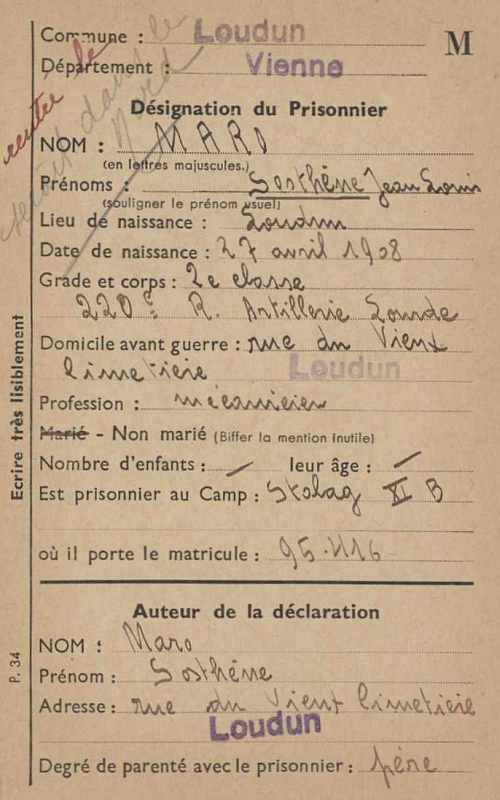 Commune : Loudun
M
Département : Vienne
rentré le
Nord
Désignation du Prisonnier
NOM : MARO
(en lettres majuscules.)
Prénoms : Sosthène Jean Louis
(souligner le prénom usuel)
Lieu de naissance : Loudun
Date de naissance : 27 avril 1908
Grade et corps : 2e classe
220e R. Artillerie Lourde
Domicile avant guerre : rue du Vieux
Cimetière Loudun
Profession : mécanicien
Marié - Non marié (Biffer la mention inutile)
Nombre d'enfants : / leur âge : /
Est prisonnier au Camp : Stalag XI B
où il porte le matricule : 95.416
Auteur de la déclaration
NOM : Maro
Prénom : Sosthène
Adresse : rue du Vieux Cimetière
Loudun
Degré de parenté avec le prisonnier : père
Ecrire très lisiblement
P. 34